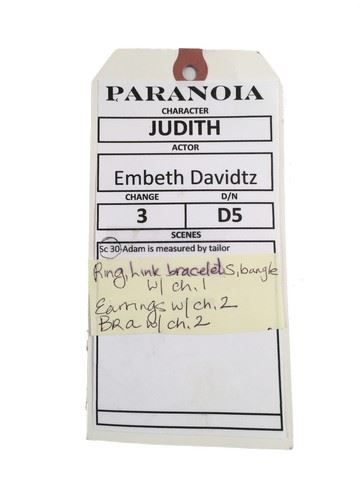 PARANOIA
CHARACTER
JUDITH
ACTOR
Embeth Davidtz
CHANGE D/N
3 D5
SCENES
Sc 30-Adam is measured by tailor
Ring, Link bracelets, bangle
w/ ch. 1
Earrings w/ ch. 2
BRA w/ ch. 2